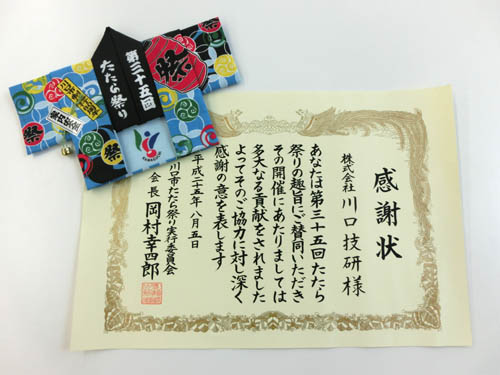 感謝状
株式会社 川口技研 様
あなたは第三十五回たたら
祭りの趣旨にご賛同いただき
その開催にあたりましては
多大なる貢献をされました
よってそのご協力に対し深く
感謝の意を表します
平成二十五年八月五日
川口市たたら祭り実行委員会
会長 岡村幸四郎
第三十五回
たたら祭り
祭
祭
祭